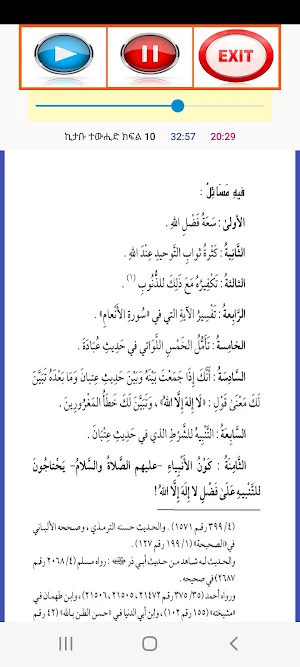 EXIT
ኪታቡ ተውሒድ ክፍል 10 32:57 20:29
فِيهِ مَسَائِلُ :
الأولىٰ : سَعَةُ فَضْلِ اللهِ .
الثَّانيةُ : كَثْرَةُ ثوابِ التَّوحيدِ عِنْدَ اللهِ .
الثالثةُ : تَكْفِيرُهُ مَعَ ذَلِكَ للذُّنُوبِ (١) .
الرَّابِعةُ : تَفْسِيرُ الآيةِ التي في «سُورةِ الأَنْعامِ» .
الخامِسةُ : تَأَمُّلُ الخَمْسِ اللَّوَاتي في حَدِيثِ عُبَادَةَ .
السادِسَةُ : أَنَّكَ إِذَا جَمَعْتَ بَيْنَهُ وَبَيْنَ حَدِيثِ عِتبانَ وَمَا بَعْدَهُ تَبَيَّنَ
لَكَ مَعْنَىٰ قَوْلِ : «لَا إِلَهَ إِلَّا اللهُ» ، وَتَبَيَّنَ لَكَ خَطَأُ المَغْرُورِينَ .
السابعةُ : التَّنْبِيهُ للشَّرْطِ الذي في حَدِيثِ عِتْبَانَ .
الثَّامِنَةُ : كَوْنُ الأَنْبِيَاءِ -عليهم الصَّلاةُ والسَّلامُ- يَحْتاجُونَ
للتَّنْبِيهِ عَلَىٰ فَضْلِ لا إِلَهَ إِلَّا اللهُ !
(٤/ ٣٩٩ رقم ١٥٧١) . والحديث حسنه الترمذي ، وصححه الألباني
في «الصحيحة» (١/ ١٩٩ رقم ١٢٧) .
والحديث له شاهد من حديث أبي ذر ﷺ : رواه مسلم (٤/ ٢٠٦٨ رقم
٢٦٨٧) في صحيحه .
ورواه أحمد (٣٥/ ٣٧٥ رقم ٢١٤٧٢ ، ٢١٥٠٥ ، ٢١٥٠٦) ، وابن طهمان في
«مشيخته» (١٥٥ رقم ١٠٢) ، وابن أبي الدنيا في «حسن الظن بالله» (٤٢ رقم